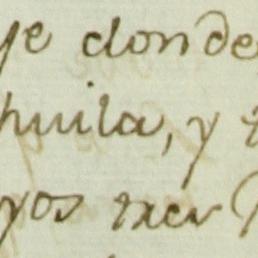 ye donde
huila, y
yos tres